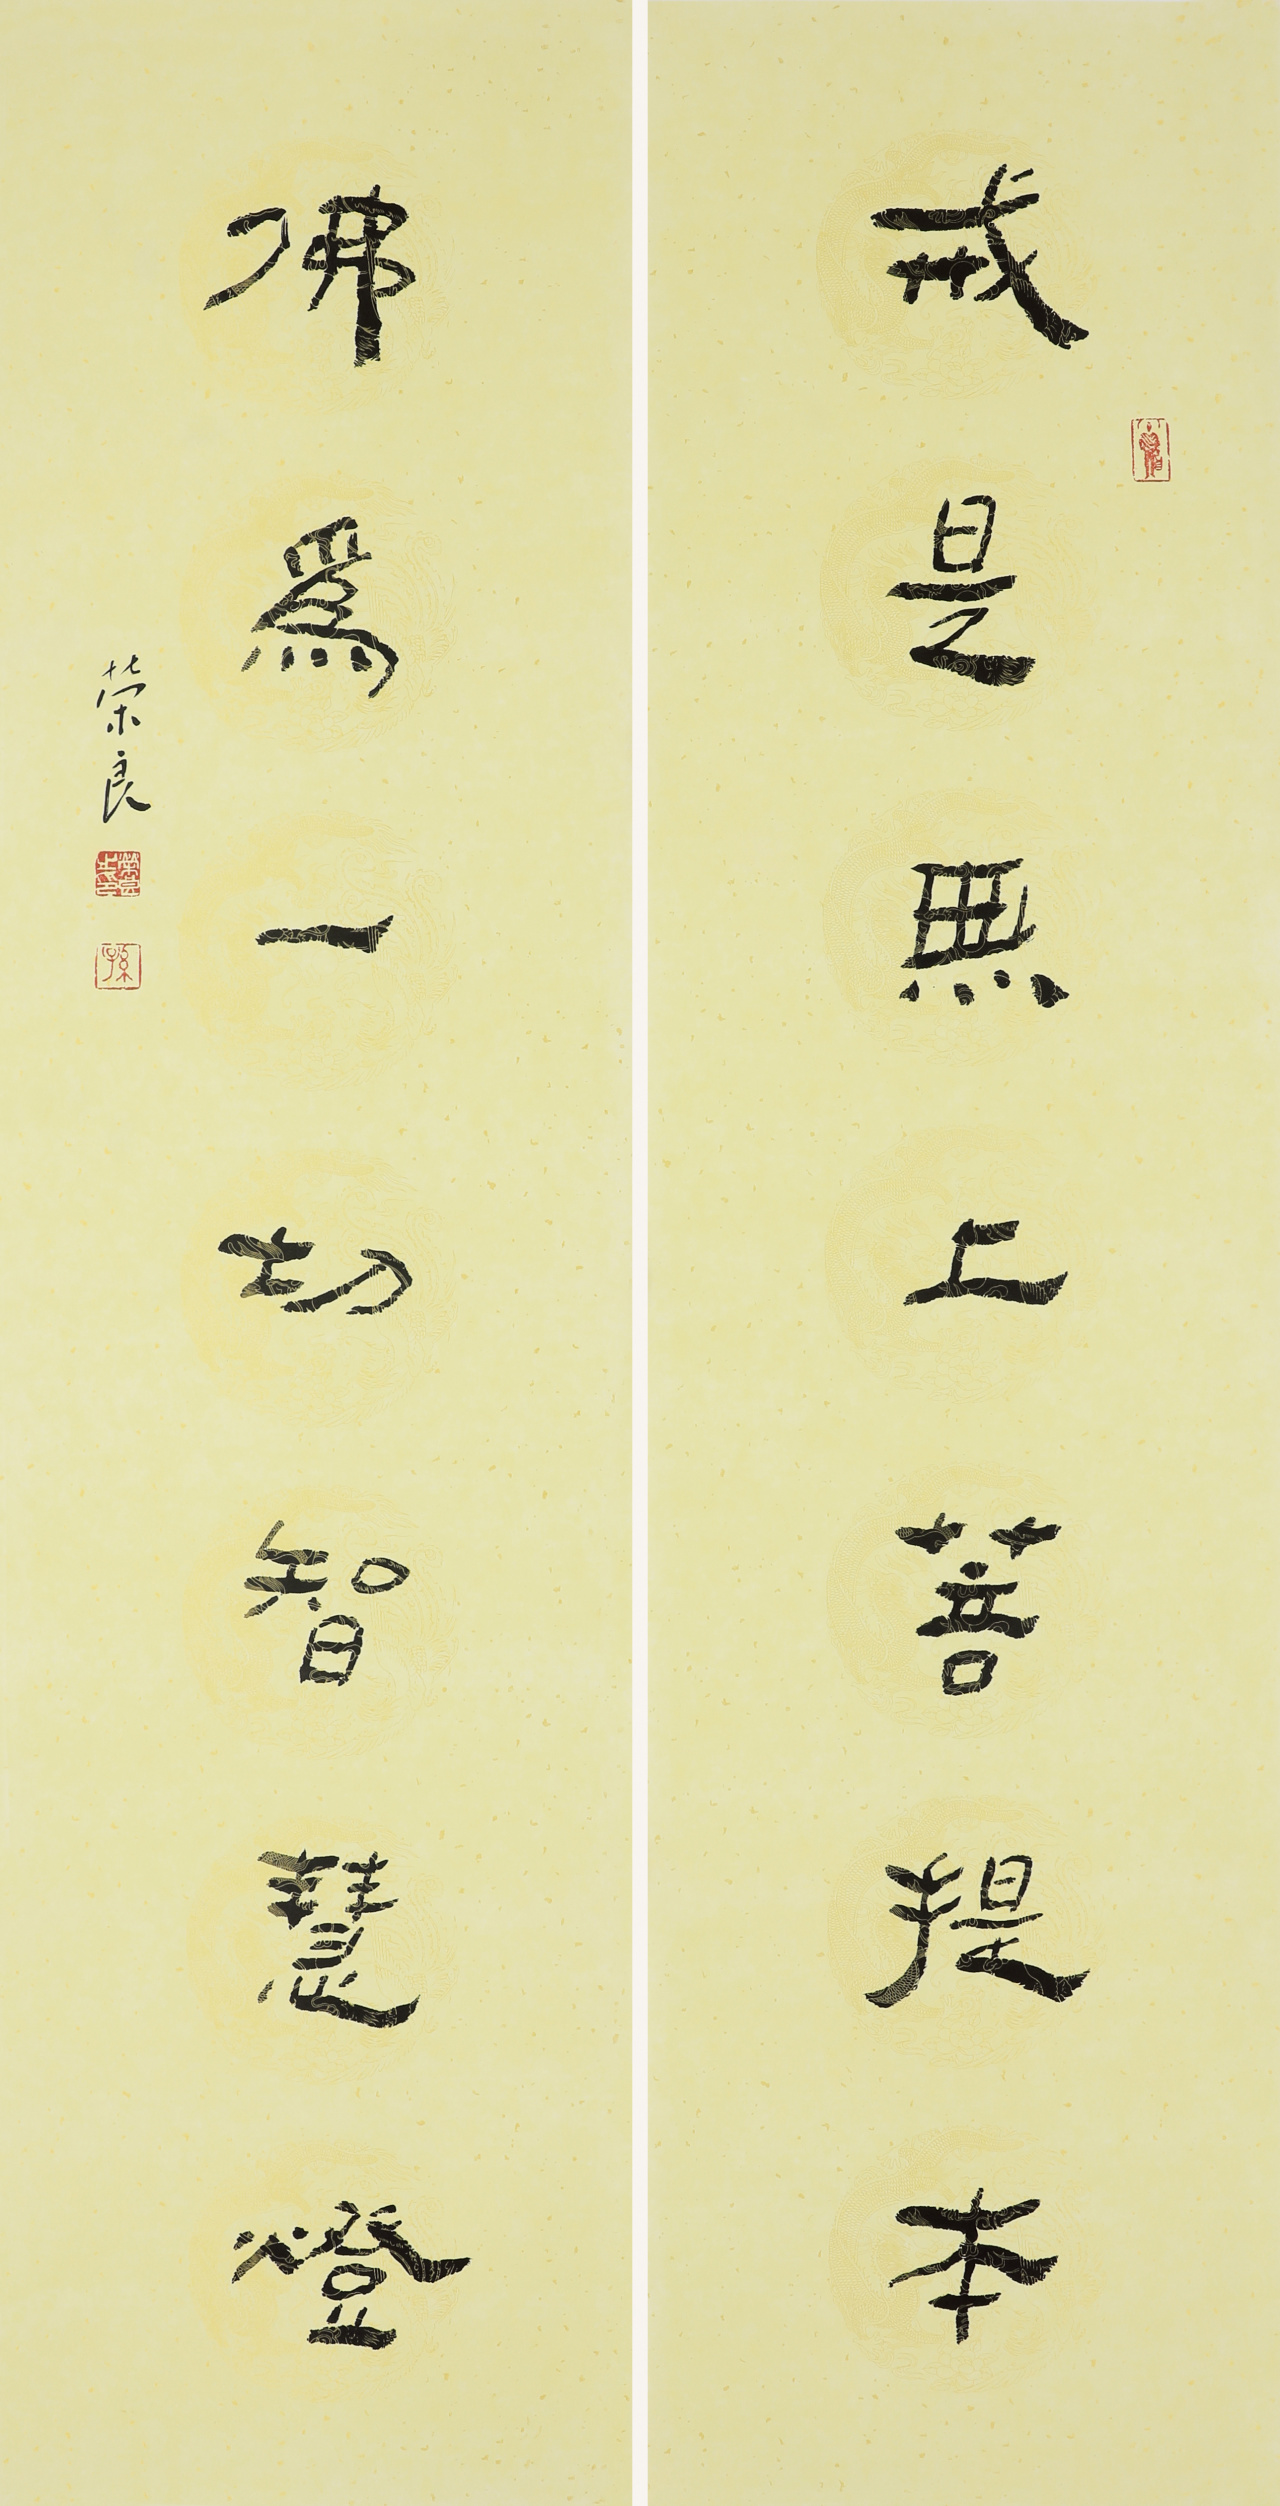 戒是無上菩提本
佛爲一切智慧燈
荣良
孫